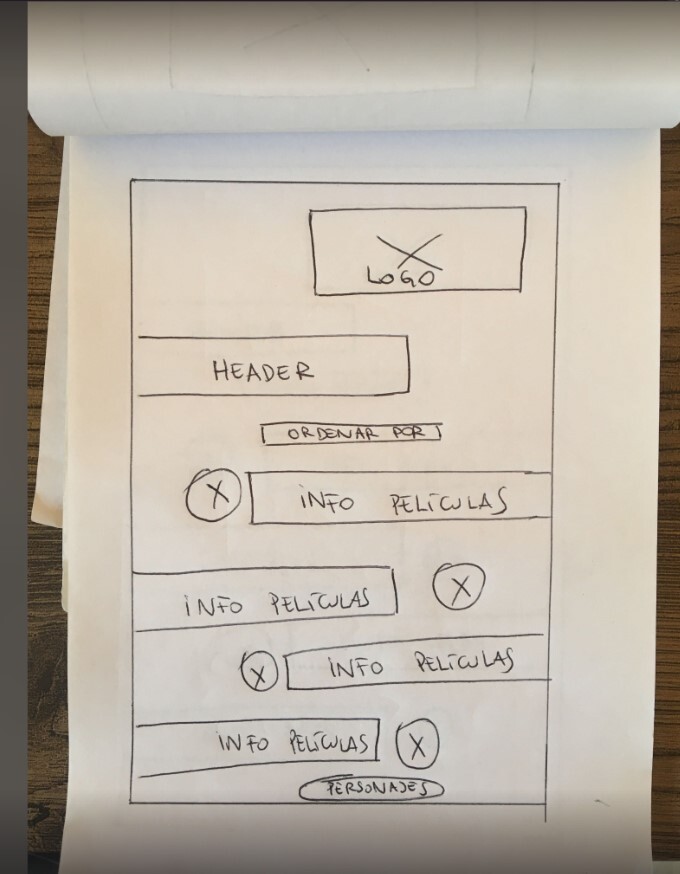 LOGO
HEADER
ORDENAR POR
INFO PELÍCULAS
INFO PELÍCULAS
INFO PELÍCULAS
INFO PELÍCULAS
PERSONAJES